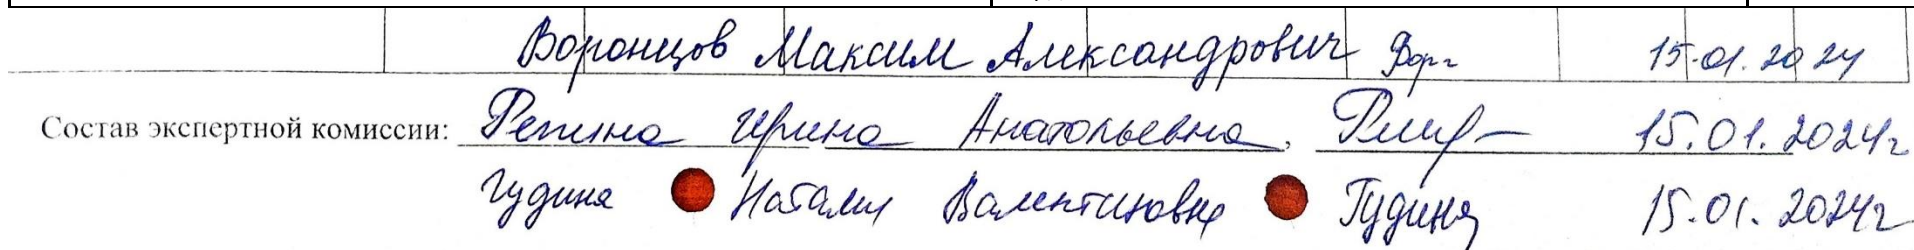 Воронцов Максим Александрович Вор 15.01.2024
Состав экспертной комиссии: Репина Ирина Анатольевна, 15.01.2024г
Гудина Наталия Валентиновна Гудина 15.01.2024г